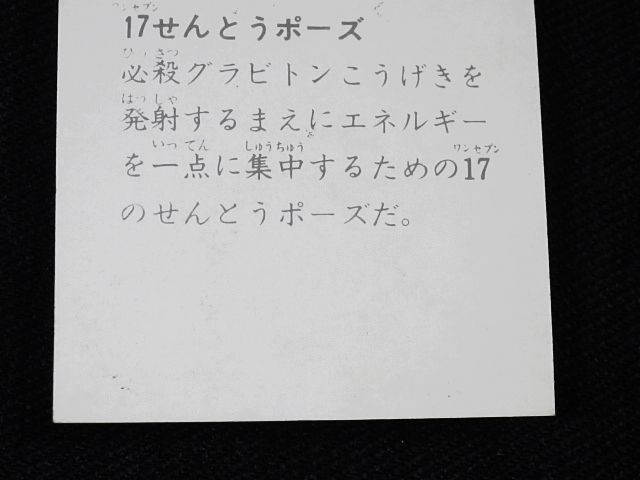 17せんとうポーズ
必殺グラビトンこうげきを
発射するまえにエネルギー
を一点に集中するための17
のせんとうポーズだ。